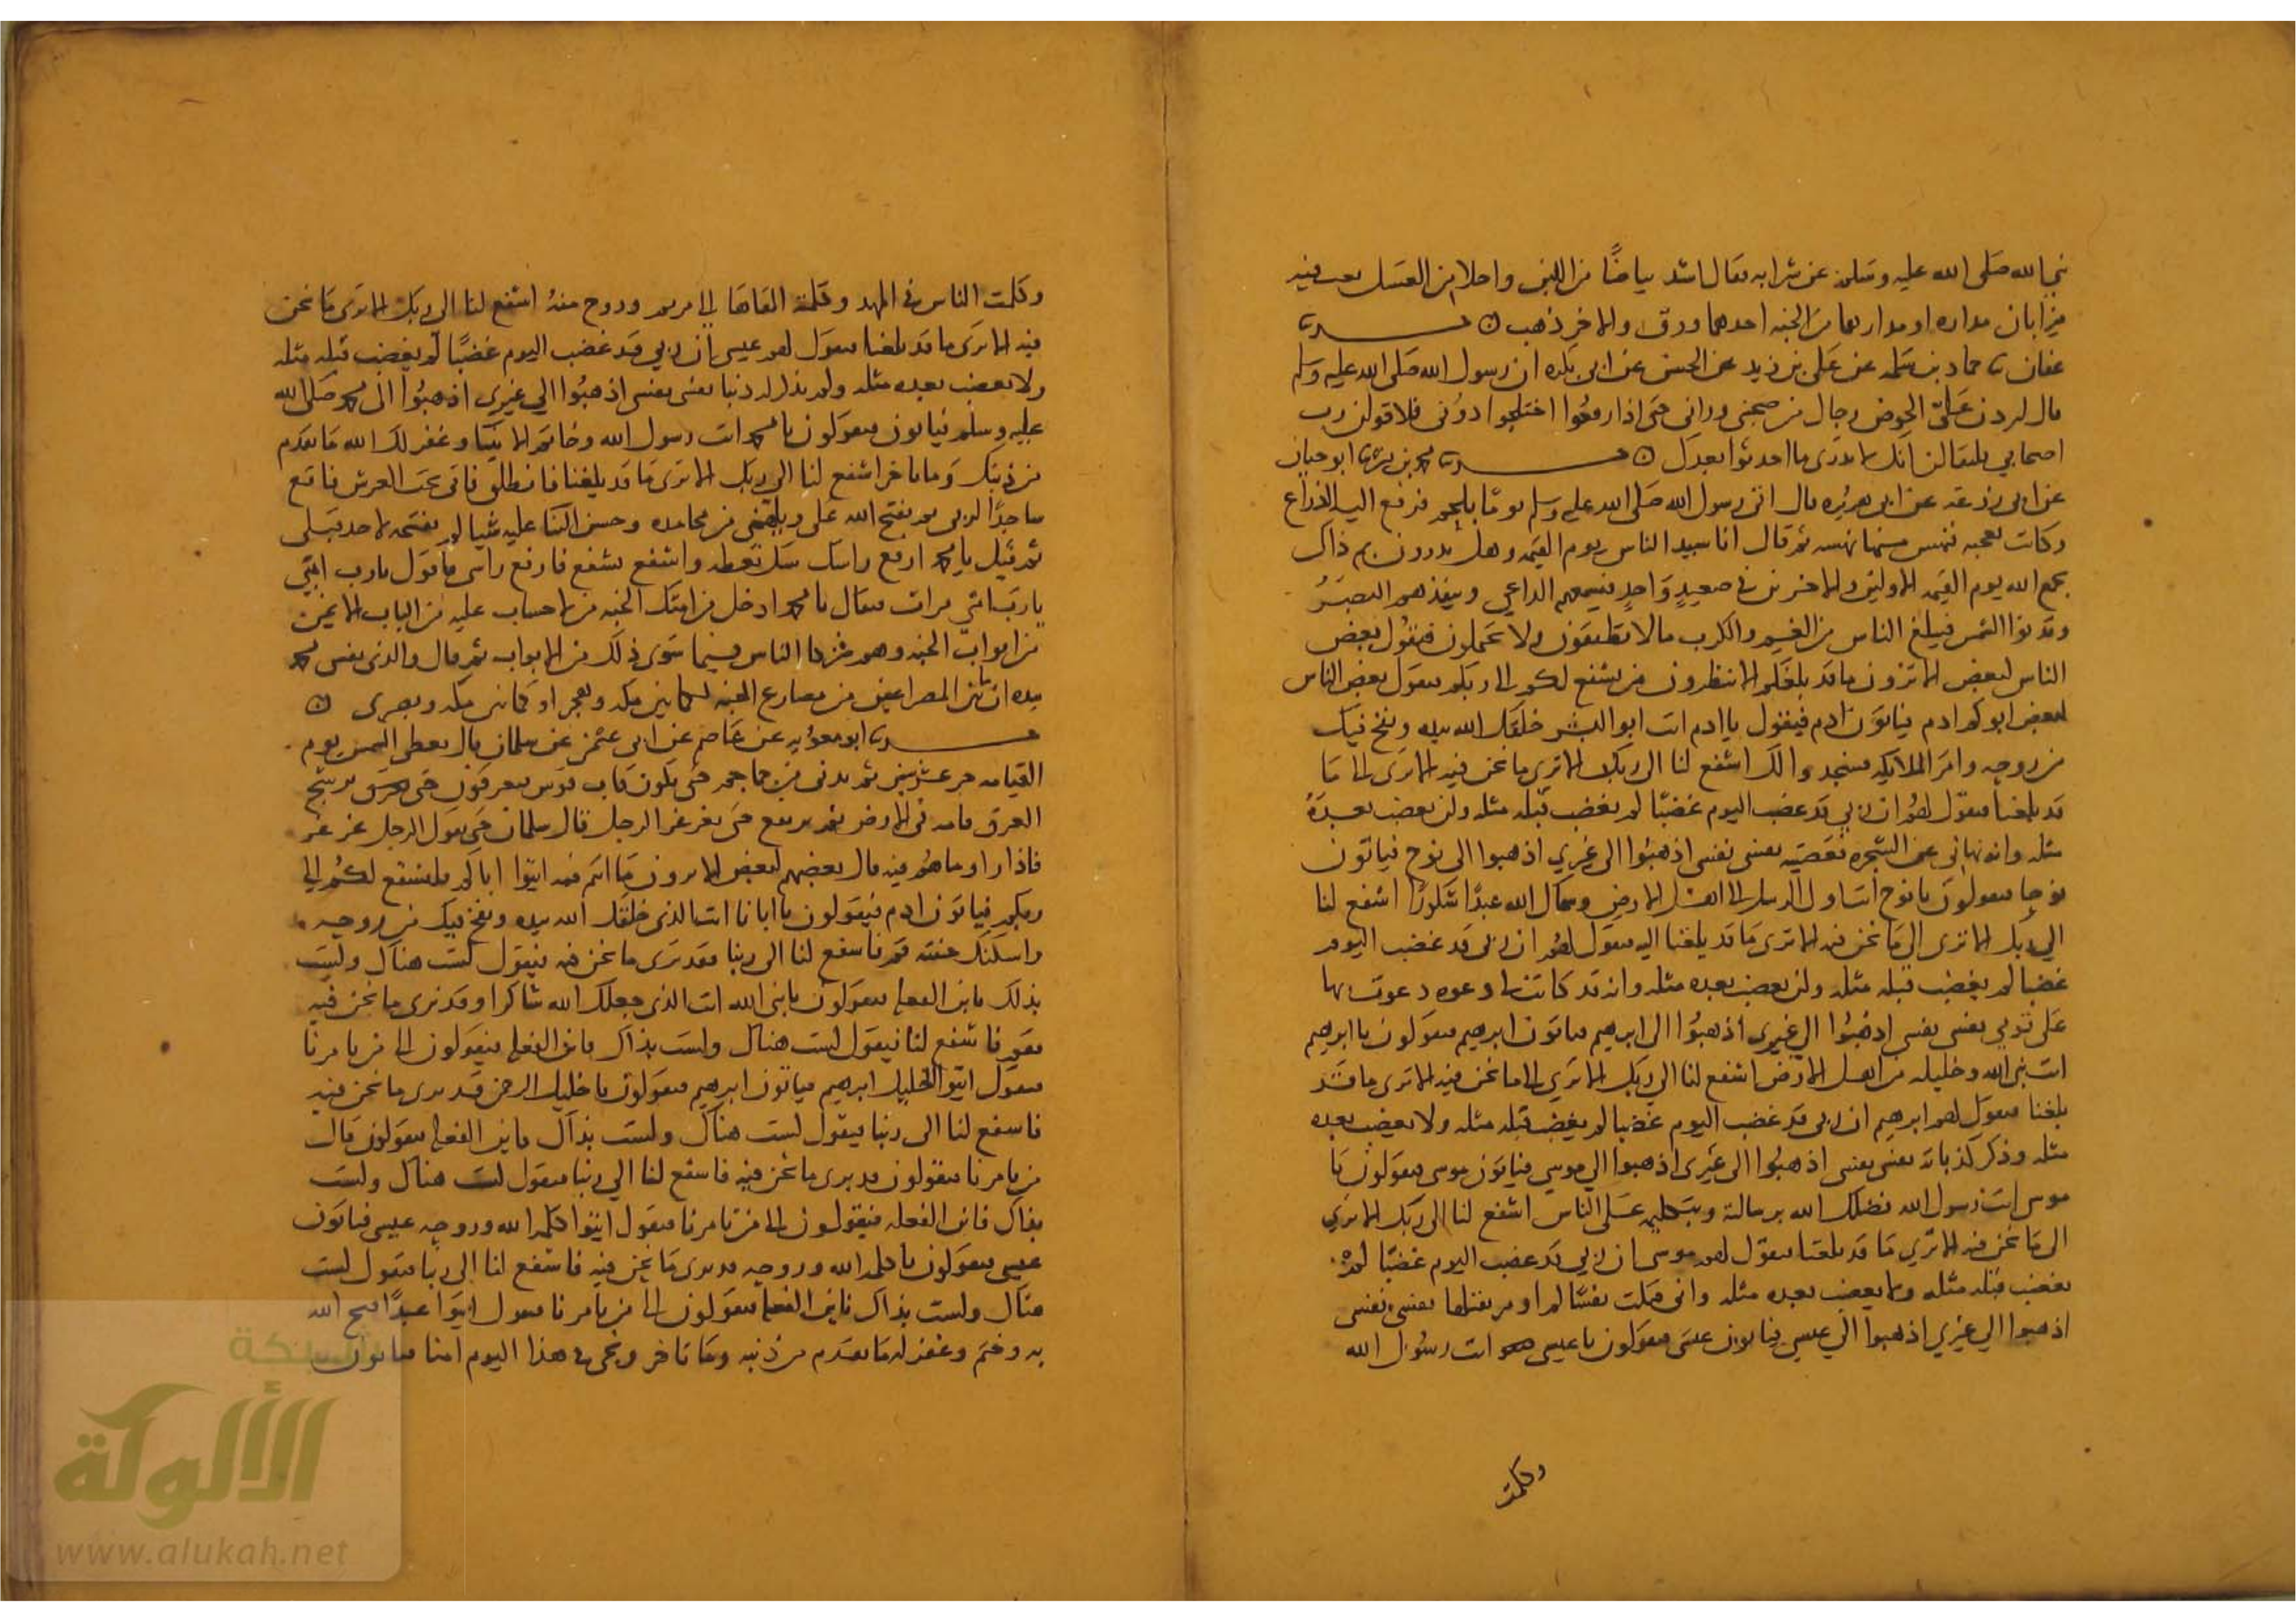 نبي الله صلى الله عليه وسلم عن شرابه فقال اشد بياضا من اللبن واحلا من العسل يعب فيه
ميزابان مداده او مدادهما من الجنه احدهما ورق والاخر ذهب ن حدثنا
عفان ثنا حماد بن سلمه عن على بن زيد عن الحسن عن ابى بكره ان رسول الله صلى الله عليه وسلم
قال ليردن على الحوض رجال ممن صحبني وراني حتى اذا رفعوا اختلجوا دوني فلاقولن رب
اصحابي فليقالن انك لا تدرى ما احدثوا بعدك ن حدثنا محمد بن بشر ثنا ابو حيان
عن ابى زرعه عن ابى هريره قال اتى رسول الله صلى الله عليه وسلم يوما بلحم فرفع اليه الذراع
وكانت تعجبه فنهس منها نهسه ثم قال انا سيد الناس يوم القيمه وهل تدرون بم ذاك
يجمع الله يوم القيمه الاولين والاخرين في صعيد واحد فيسمعهم الداعي وينفذهم البصر
وتدنوا الشمس فيبلغ الناس من الغم والكرب مالا يطيقون ولا يحملون فيقول بعض
الناس لبعض الا ترون ما قد بلغكم الا تنظرون من يشفع لكم الى ربكم فيقول بعض الناس
لبعض ابوكم ادم فياتون ادم فيقول يا ادم انت ابو البشر خلقك الله بيده ونفخ فيك
من روحه وامر الملايكه فسجدوا لك اشفع لنا الى ربك الا ترى ما نحن فيه الا ترى الى ما
قد بلغنا فيقول لهم ان ربي قد غضب اليوم غضبا لم يغضب قبله مثله ولن يغضب بعده
مثله وانه نهاني عن الشجره فعصيته نفسى نفسى اذهبوا الى غيري اذهبوا الى نوح فياتون
نوحا فيقولون يا نوح انت اول الرسل الى اهل الارض وسماك الله عبدا شكورا اشفع لنا
الى ربك الا ترى الى ما نحن فيه الا ترى ما قد بلغنا اليه فيقول لهم ان ربى قد غضب اليوم
غضبا لم يغضب قبله مثله ولن يغضب بعده مثله وانه قد كانت لى دعوه دعوت بها
على قومي نفسى نفسى اذهبوا الى غيرى اذهبوا الى ابرهيم فياتون ابرهيم فيقولون يا ابرهيم
انت نبى الله وخليله من اهل الارض اشفع لنا الى ربك الا ترى الى ما نحن فيه الا ترى ما قد
بلغنا فيقول لهم ابرهيم ان ربى قد غضب اليوم غضبا لم يغضب قبله مثله ولا يغضب بعده
مثله وذكر كذباته نفسى نفسى اذهبوا الى غيرى اذهبوا الى موسى فياتون موسى فيقولون يا
موسى انت رسول الله فضلك الله برسالته وبتكليمه على الناس اشفع لنا الى ربك الا ترى
الى ما نحن فيه الا ترى ما قد بلغنا فيقول لهم موسى ان ربي قد غضب اليوم غضبا لم
يغضب قبله مثله ولا يغضب بعده مثله وانى قتلت نفسا لم اومر بقتلها نفسى نفسى
اذهبوا الى غيري اذهبوا الى عيسى فياتون عيسى فيقولون يا عيسى انت رسول الله
وكلمت
وكلمت الناس في المهد وكلمة القاها الى مريم وروح منه اشفع لنا الى ربك الا ترى ما نحن
فيه الا ترى ما قد بلغنا فيقول لهم عيسى ان ربي قد غضب اليوم غضبا لم يغضب قبله مثله
ولا يغضب بعده مثله ولم يذكر له ذنبا نفسى نفسى اذهبوا الي غيري اذهبوا الى محمد صلى الله
عليه وسلم فياتون فيقولون يا محمد انت رسول الله وخاتم الانبيا وغفر لك الله ما تقدم
من ذنبك وما تاخر اشفع لنا الى ربك الا ترى ما قد بلغنا فانطلق فاتى تحت العرش فاقع
ساجدا لربى ثم يفتح الله على ويلهمني من محامده وحسن الثنا عليه شيا لم يفتحه لاحد قبلى
ثم قيل يا محمد ارفع راسك سل تعطه واشفع تشفع فارفع راسى فاقول يارب امتي
يارب امتي مرات فيقال يا محمد ادخل من امتك الجنه من لاحساب عليه من الباب الايمن
من ابواب الجنه وهم شركا الناس فيما سوى ذلك من الابواب ثم قال والذى نفس محمد
بيده ان ما بين المصراعين من مصارع الجنه لكما بين مكه وهجر او كما بين مكه وبصرى ن
حدثنا ابو معويه عن عاصم عن ابى عثمن عن سلمان قال تعطى الشمس يوم
القيامه حر عشر سنين ثم تدنى من جماجم حتى تكون قاب قوس فيعرقون حتى يرشح
العرق قامه في الارض ثم يرتفع حتى يغرغر الرجل قال سلمان حتى يقول الرجل غر غر
فاذا راوا ما هم فيه قال بعضهم لبعض الا ترون ما انتم فيه ايتوا اباكم فليشفع لكم الى
ربكم فياتون ادم فيقولون يا ابانا انت الذى خلقك الله بيده ونفخ فيك من روحه
واسكنك جنته قم فاشفع لنا الى ربنا فقد ترى ما نحن فيه فيقول لست هناك ولست
بذلك فاين الفعله فيقولون يا نبى الله انت الذى جعلك الله شاكرا وقد ترى ما نحن فيه
فقم فاشفع لنا فيقول لست هناك ولست بذاك فاين الفعله فيقولون الى من تامرنا
فيقول ايتوا الخليل ابرهيم فياتون ابرهيم فيقولون يا خليل الرحمن قد ترى ما نحن فيه
فاشفع لنا الى ربنا فيقول لست هناك ولست بذاك فاين الفعله فيقولون قال
من تامرنا فيقولون قد ترى ما نحن فيه فاشفع لنا الى ربنا فيقول لست هناك ولست
بذاك فاين الفعله فيقولون الى من تامرنا فيقول ايتوا كلمه الله وروحه عيسى فياتون
عيسى فيقولون يا كلمه الله وروحه قد ترى ما نحن فيه فاشفع لنا الى ربنا فيقول لست
هناك ولست بذاك فاين الفعله فيقولون الى من تامرنا فيقول ايتوا عبدا فتح الله
به وختم وغفر له ما تقدم من ذنبه وما تاخر ويجى في هذا اليوم امنا فياتون
شبكة
الألوكة
www.alukah.net